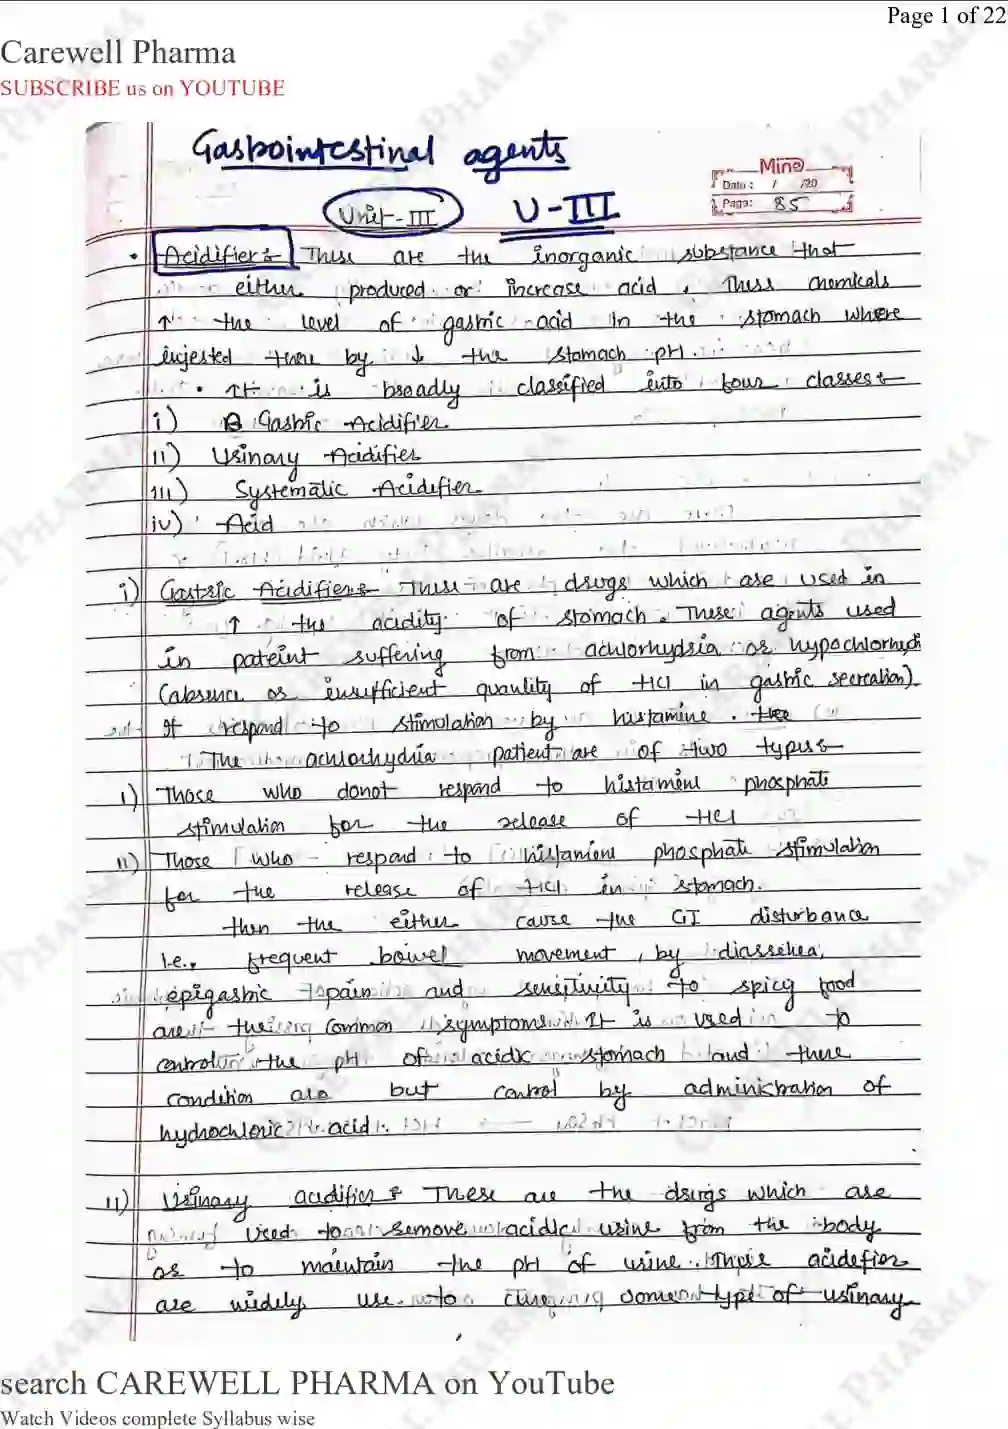 Page 1 of 22
Carewell Pharma
SUBSCRIBE us on YOUTUBE
Gastrointestinal agents
Mino
Date : / /20
Page: 85
Unit-III U-III
• Acidifier :- These are the inorganic substance that
either produced or increase acid. These chemicals
↑ the level of gastric acid in the stomach where
injested there by ↓ the stomach pH.
• It is broadly classified into four classes :-
i) Gastric Acidifier
ii) Urinary Acidifier
iii) Systematic Acidifier
iv) Acid
i) Gastric Acidifier :- These are drugs which are used in
↑ the acidity of stomach. These agents used
in pateint suffering from achlorhydria or hypochlorhydi
(absence or insufficient quantity of HCl in gastric secreation).
It respond to stimulation by histamine.
The achlorhydria patient are of two types :-
i) Those who donot respond to histamine phosphate
stimulation for the release of HCl
ii) Those who respond to histamine phosphate stimulation
for the release of HCl in stomach.
then the either cause the GI disturbance
i.e., frequent bowel movement, by diarrehea,
epigastric pain and sensitivity to spicy food
are the common symptoms. It is used to
control the pH of acidic stomach and there
condition are but control by administration of
hydrochloric acid.
ii) Urinary acidifier :- These are the drugs which are
used to remove acidic urine from the body
or to maintain the pH of urine. These acidefier
are widely use to curing some type of urinary
search CAREWELL PHARMA on YouTube
Watch Videos complete Syllabus wise
CAREWELL PHARMA